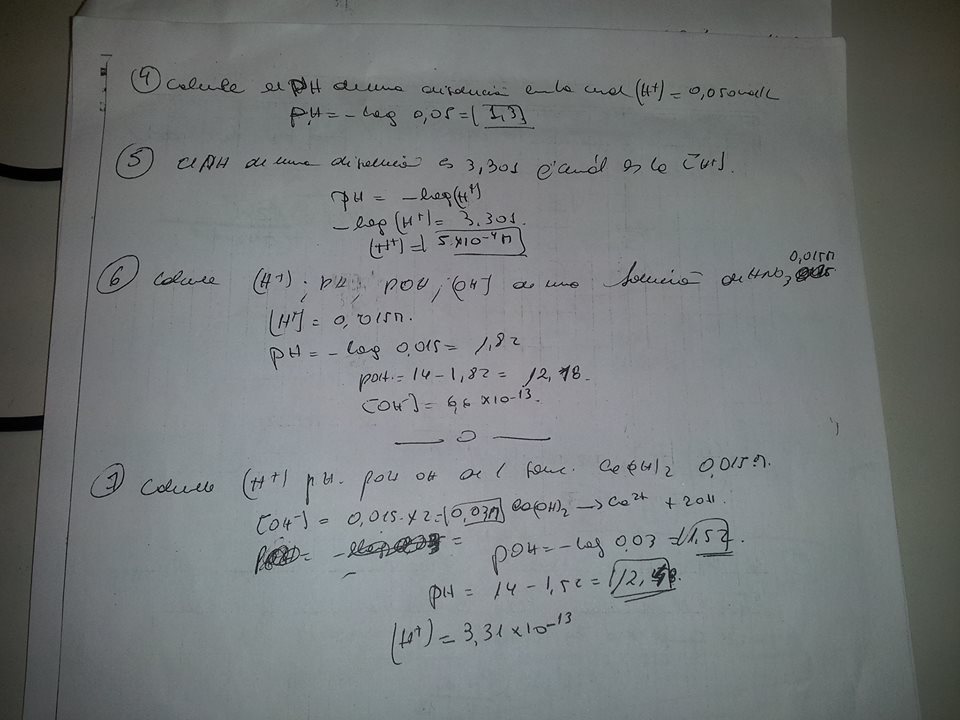 ④ Calcule el pH de una disolución en la cual (H⁺) = 0,050 mol/L
pH = -log 0,05 = 1,3
⑤ el pH de una disolución es 3,301 ¿cuál es la [H⁺].
pH = -log(H⁺)
-log (H⁺) = 3,301.
(H⁺) = 5.×10⁻⁴M
⑥ Calcule (H⁺); pH; pOH; [OH] de una solución de HNO₃ 0,015M
[H⁺] = 0,015M.
pH = -log 0,015 = 1,82
pOH = 14 - 1,82 = 12,18.
[OH⁻] = 6,6 ×10⁻¹³.
0
⑦ Calcule (H⁺) pH. pOH OH de 1 Ca(OH)₂ 0,015M.
[OH⁻] = 0,015.×2 = 0,03M Ca(OH)₂ → Ca²⁺ + 2OH.
pOH = -log 0,03 = 1,52.
pH = 14 - 1,52 = 12,48.
(H⁺) = 3,31 ×10⁻¹³